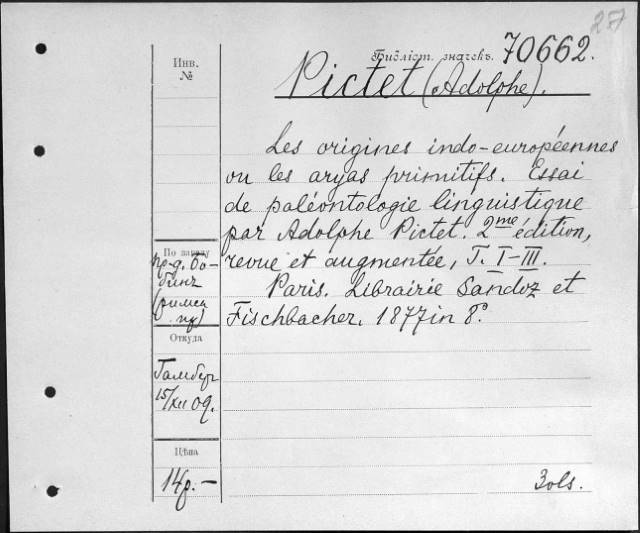 27
Библіот. значекъ. 70662.
Инв.
№
Pictet (Adolphe).
Les origines indo-européennes
ou les aryas primitifs. Essai
de paléontologie linguistique
par Adolphe Pictet. 2me édition,
revue et augmentée, T. I-III.
Paris. Librairie Sandoz et
Fischbacher. 1877 in 8º.
По заказу
пр-д. Бо-
Откуда
15/XII 09.
Цѣна
14р.-
3 vols.